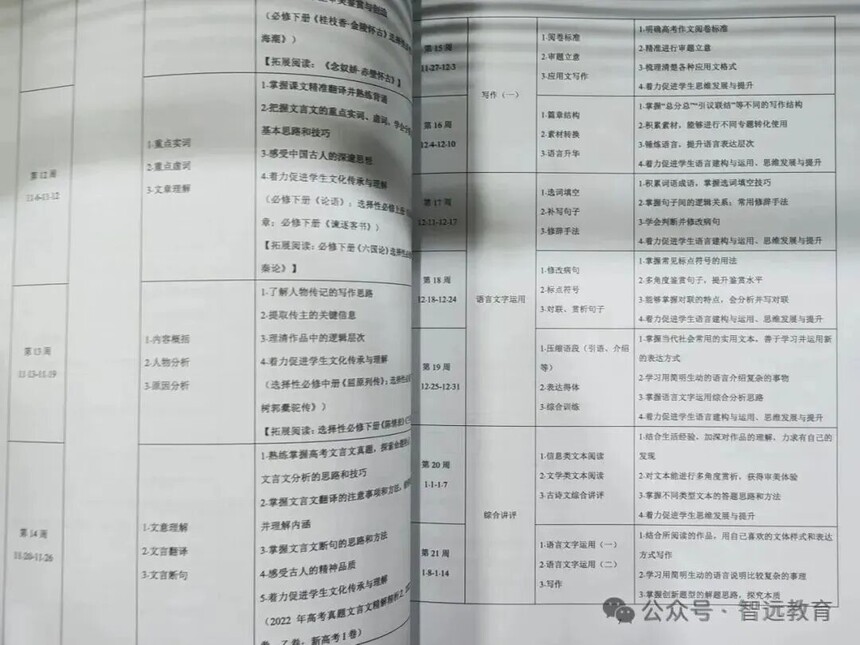 美鉴赏与创造
（必修下册《桂枝香·金陵怀古》选择
海潮》）
【拓展阅读：《念奴娇·赤壁怀古》】
第 12 周
11-6-11-12
1-重点实词
2-重点虚词
3-文章理解
1-掌握课文精准翻译并熟练背诵
2-把握文言文的重点实词、虚词，学会
基本思路和技巧
3-感受中国古人的深邃思想
4-着力促进学生文化传承与理解
（必修下册《论语》；选择性必修上册
章；必修下册《谏逐客书》）
【拓展阅读：必修下册《六国论》选择性必
秦论》】
第 13 周
11-13-11-19
1-内容概括
2-人物分析
3-原因分析
1-了解人物传记的写作思路
2-提取传主的关键信息
3-理清作品中的逻辑层次
4-着力促进学生文化传承与理解
（选择性必修中册《屈原列传》；选择性必
树郭橐驼传》）
【拓展阅读：选择性必修下册《陈情表》
第 14 周
11-20-11-26
1-文意理解
2-文言翻译
3-文言断句
1-熟练掌握高考文言文真题，探索命题
文言文分析的思路和技巧
2-掌握文言文翻译的注意事项和方法，
并理解内涵
3-掌握文言文断句的思路和方法
4-感受古人的精神品质
5-着力促进学生文化传承与理解
（2022 年高考真题文言文精解精析2.
卷、乙卷；新高考 I 卷）
第 15 周
11-27-12-3
写作（一）
1-阅卷标准
2-审题立意
3-应用文写作
1-明确高考作文阅卷标准
2-精准进行审题立意
3-梳理清楚各种应用文格式
4-着力促进学生思维发展与提升
第 16 周
12-4-12-10
1-篇章结构
2-素材转换
3-语言升华
1-掌握“总分总”“引议联结”等不同的写作结构
2-积累素材，能够进行不同专题转化使用
3-锤炼语言，提升语言表达层次
4-着力促进学生语言建构与运用、思维发展与提升
第 17 周
12-11-12-17
语言文字运用
1-选词填空
2-补写句子
3-修辞手法
1-积累词语成语，掌握选词填空技巧
2-掌握句子间的逻辑关系；常用修辞手法
3-学会判断并修改病句
4-着力促进学生语言建构与运用、思维发展与提升
第 18 周
12-18-12-24
1-修改病句
2-标点符号
3-对联、赏析句子
1-掌握常见标点符号的用法
2-多角度鉴赏句子，提升鉴赏水平
3-能够掌握对联的特点，会分析并写对联
4-着力促进学生语言建构与运用、思维发展与提升
第 19 周
12-25-12-31
1-压缩语段（引语、介绍
等）
2-表达得体
3-综合训练
1-掌握当代社会常用的实用文本，善于学习并运用新
的表达方式
2-学习用简明生动的语言介绍复杂的事物
3-掌握语言文字运用综合分析思路
4-着力促进学生语言建构与运用、思维发展与提升
第 20 周
1-1-1-7
综合讲评
1-信息类文本阅读
2-文学类文本阅读
3-古诗文综合讲评
1-结合生活经验，加深对作品的理解，力求有自己的
发现
2-对文本能进行多角度赏析，获得审美体验
3-掌握不同类型文本的答题思路和方法
4-着力促进学生思维发展与提升
第 21 周
1-8-1-14
1-语言文字运用（一）
2-语言文字运用（二）
3-写作
1-结合所阅读的作品，用自己喜欢的文体样式和表达
方式写作
2-学习用简明生动的语言说明比较复杂的事理
3-掌握创新题型的解题思路，探究本质
公众号·智远教育